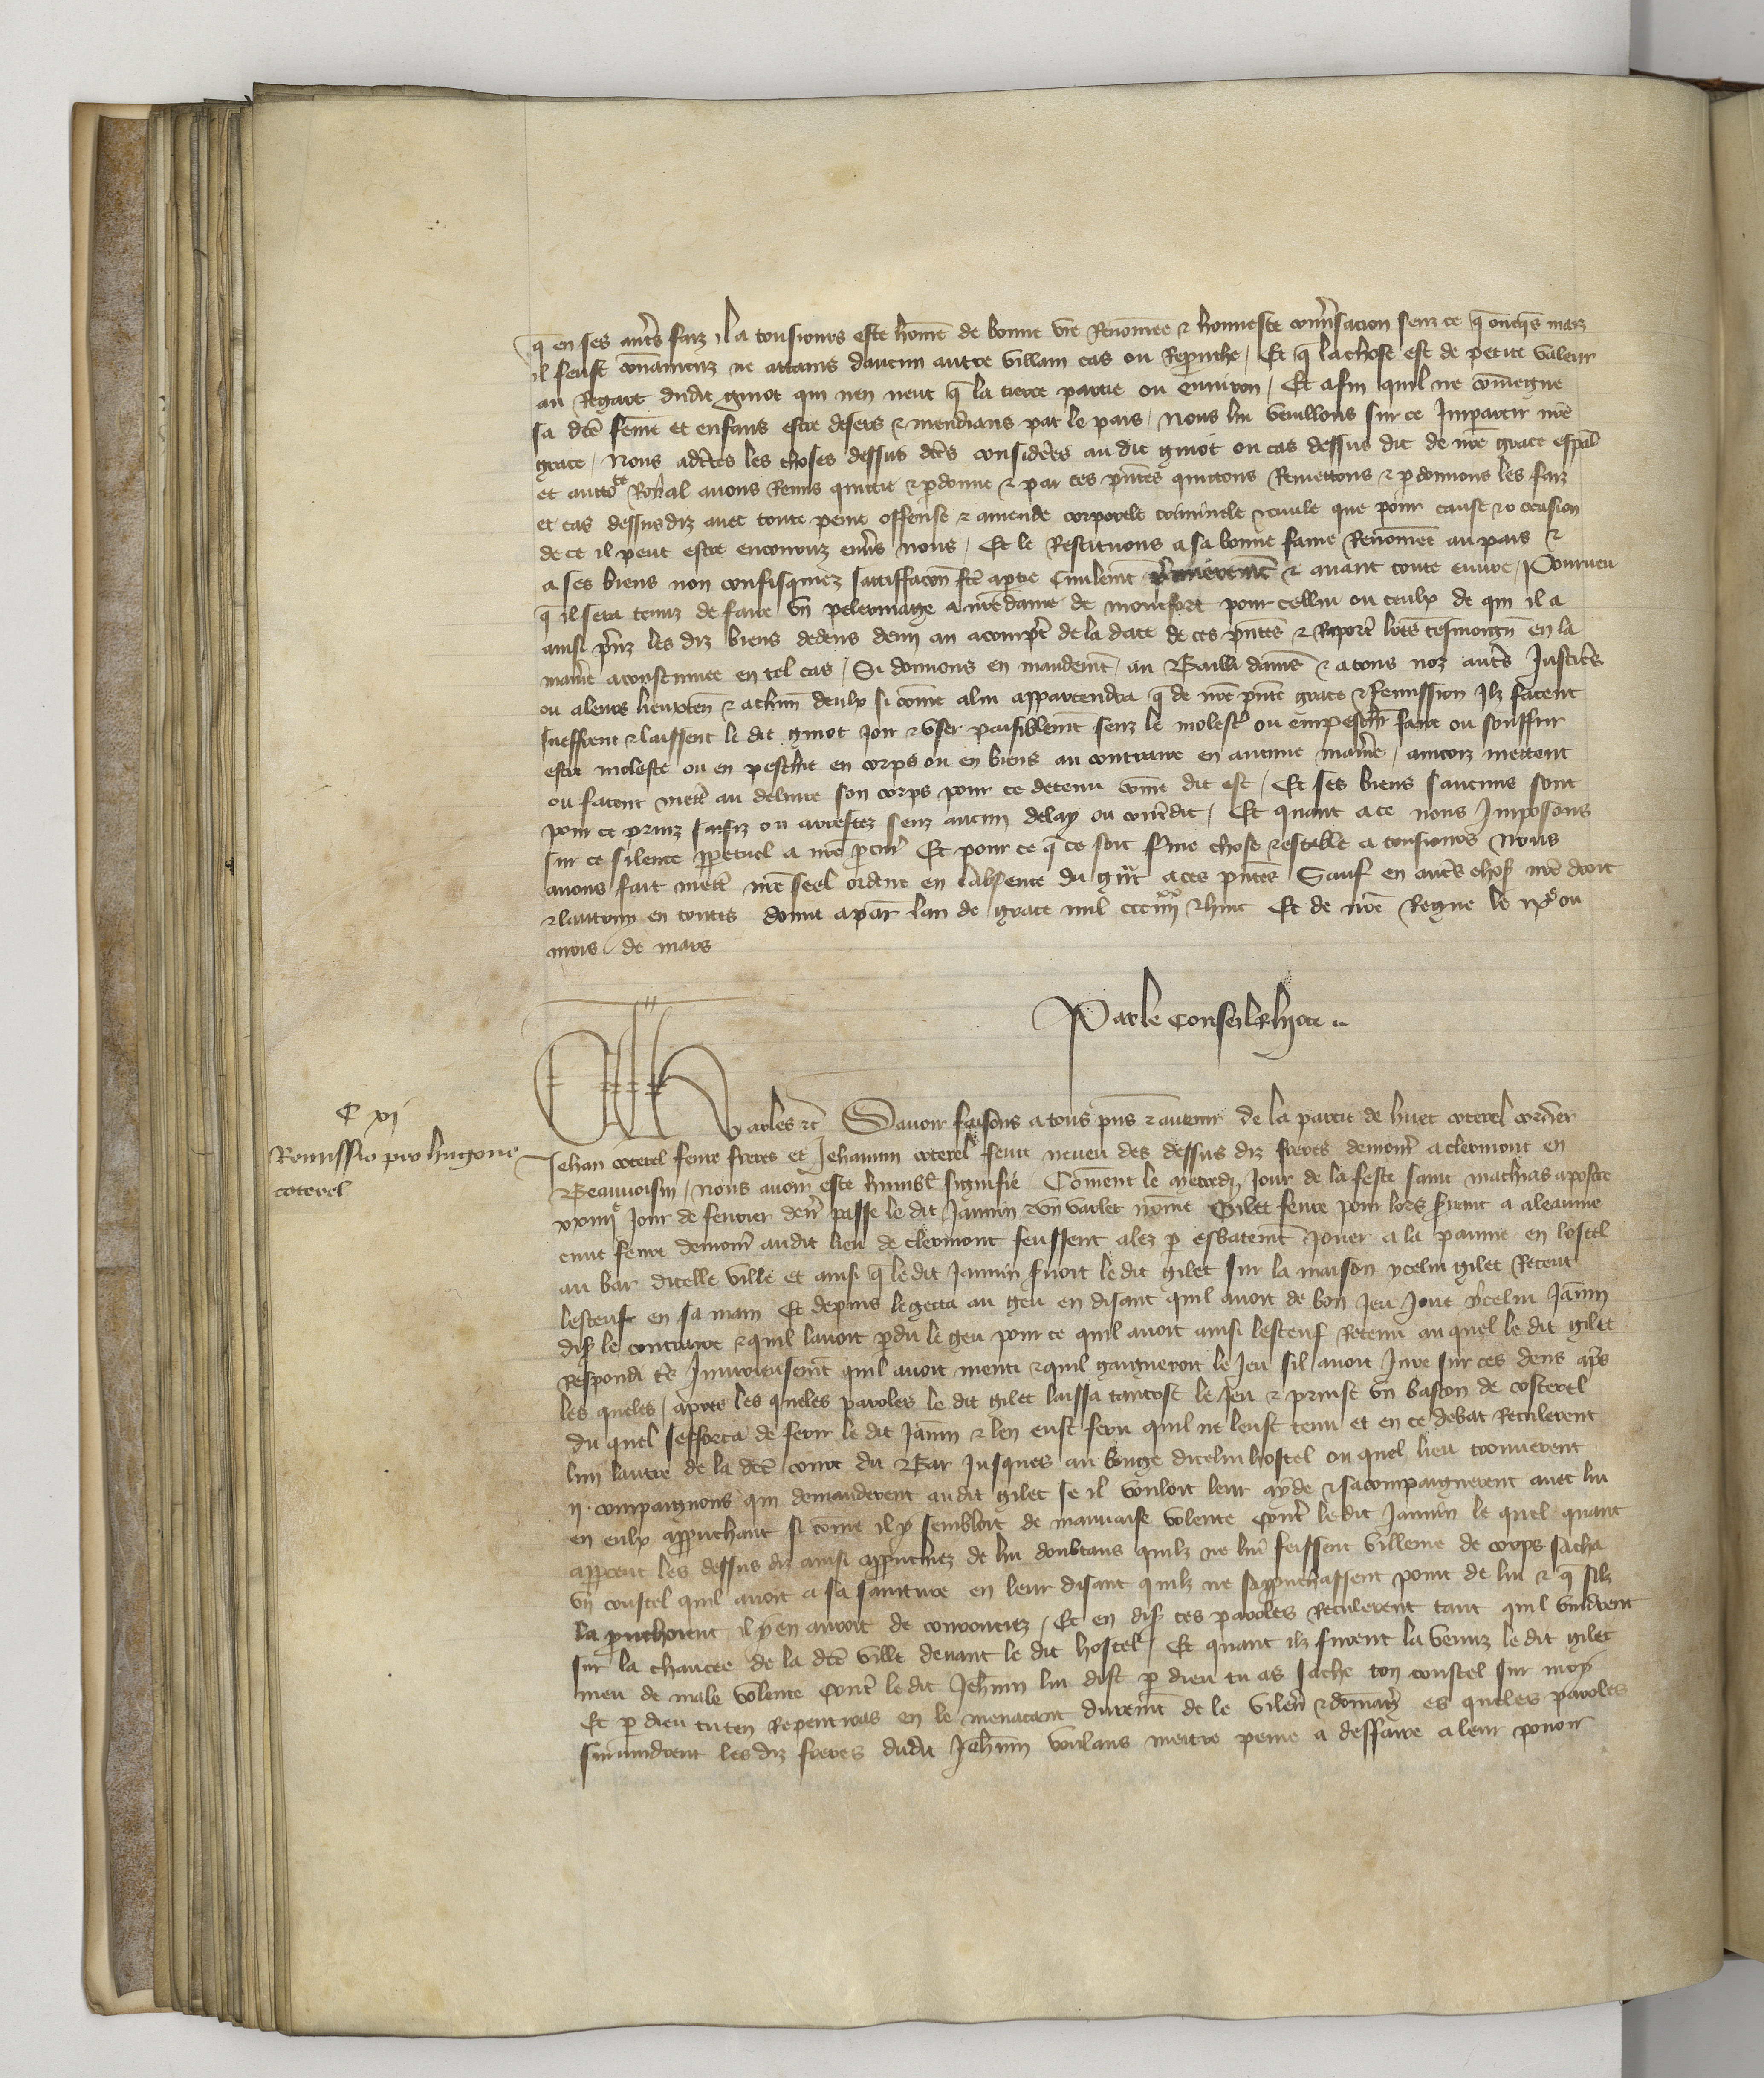 q̄ en ses aut̄s faiz il a tousiours este hōme de bonne vie Renōmee & honneste conv̄sacion senz ce q̄ oncq̄s mais
il feust convaincuz ne attains daucun autre villain cas ou Reprouche / Et q̄ la chose est de petite valeur
au Regart dudit guiot qui nen neut q̄ la tierce partie ou environ / Et afin quil ne conviegne
sa dicte fēme et enfans estre desers & mendians par le pais / nous lui vueillons sur ce Impartir nr̄e
grace / Nous adc̄tes les choses dessus dc̄es considerees au dit guiot ou cas dessus dit de nr̄e grace esp̄al
et auctote Royal avons Remis quictie & p̄donne & par ces p̄ntes quictons Remettons & p̄donnons les faiz
et cas dessusdiz avec toute peine offense & amende corporele criminele & civile que pour cause & occasion
de ce il peut estre encouruz env̄s nous / Et le Restituons a sa bonne fame Renōmee au pais &
a ses biens non confisquiez sattisfacōn fc̄e a ptie civilemt p̄mierement & avant toute euvre / Pourveu
q̄ il sera tenuz de faire vn pelerinage a nr̄e dame de montfort pour cellui ou ceulx de qui il a
ainsi p̄nz les diz biens dedens demi an a compt̄ de la date de ces p̄ntes & Raport̄ lr̄es tesmoigñ en la
manie acoustumee en tel cas / Si donnons en mandemt au Bailli damiēs & a tous noz aut̄s Justic̄s
ou a leurs lieuxteñ & a chun deulx si cōme a lui appartendra q̄ de nr̄e p̄nte grace & Remission Ilz facent
sueffrent & laissent le dit guiot Joir & vser paisiblemt senz le molest̄ ou empeschier faire ou souffrir
estre moleste ou en peschie en corps ou en biens au contraire en aucune manie / aincois mettent
ou facent mett̄ au delivre son corps pour ce detenu cōme dit est / Et ses biens saucuns sont
pour ce prins saisiz ou arrestez senz aucun delay ou cont̄dit / Et quant a ce nous Imposons
sur ce silence ppetuel a nr̄e pcur̄ Et pour ce q̄ ce soit ferme chose & estable a tousiours Nous
avons fait mett̄ nr̄e seel ordene en labsence du gn̄t a ces p̄ntes Sauf en aut̄s choses nr̄e droit
& lautruy en toutes donne a pa͞r lan de grace mil ccc iiijxx & huit Et de nr̄e Regne le ixe ou
mois de mars
Par le conseil &hore
C xi
Remissio pro hugone
coterel
Charles &c Savoir faisons a tous p̄ns & avenir de la partie de huet coterel cordier
Jehan coterel feure freres et Jehannin coterel feure neveu des dessus diz freres demour̄ a clermont en
Beauvoisin / nous avoir este humbl̄ signifie Cōment le mercredi Jour de la feste saint mathias apostre
xxiiije Jour de fevrier deñ passe le dit Jannin & vn varlet nōme Gilet feure pour lors servant a aleaume
feure demour̄ audit lieu de clermont feussent alez p esbatemt Jouer a la paume en lostel
au bar dicelle ville et ainsi q̄ le dit Jannin servoit le dit gilet sur la maison ycelui gilet Receut
lesteuf en sa main Et depuis le getta au geu en disant quil avoit de bon Jeu Joue ycelui Jānin
dis̄ le contraire & quil lavoit p̄du le geu pour ce quil avoit ainsi lesteuf Retenu au quel le dit gilet
Respondi t̄s Inurieusemt quil avoit menti & quil gaigneroit le Jeu sil avoit Jure sur ces dens ap̄s
les queles / apres les queles paroles le dit gilet laissa tantost le Jeu & prinst vn baston de costerel
du quel sefforca de ferir le dit Jānin & len eust feru quil ne leust tenu et en ce debat Reculerent
lun lautre de la dc̄e court du Bar Jusques au bouge dicelui hostel ou quel lieu trouverent
ij. compaignons qui demanderent audit gilet se il vouloit leur ayde & sacompaignerent avec lui
en eulx approuchant si cōme il y sembloit de mauvaise volente cont̄ le dit Jannin le quel quant
apperceut les dessus diz ainsi approuchiez de lui doubtans quilz ne lui feissent villenie de corps sacha
vn coustel quil avoit a sa sainture en leur disant quilz ne sapprouchassent point de lui & q̄ silz
lapprouchoient il y en auroit de courouciez / Et en dis̄ ces paroles Reculerent tant quil vindrent
sur la chaucee de la dc̄e ville devant le dit hostel / Et quant ilz furent la venuz le dit gilet
meu de male volente cont̄ le dit Jehānin lui dist p dieu tu as sache ton coustel sur moy
Et p dieu tu ten Repentiras en le menacant duremt de le vilen̄ & dōmaḡ es queles paroles
survindrent les diz freres dudit Jehānin voulans mettre peine a deffaire a leur povoir